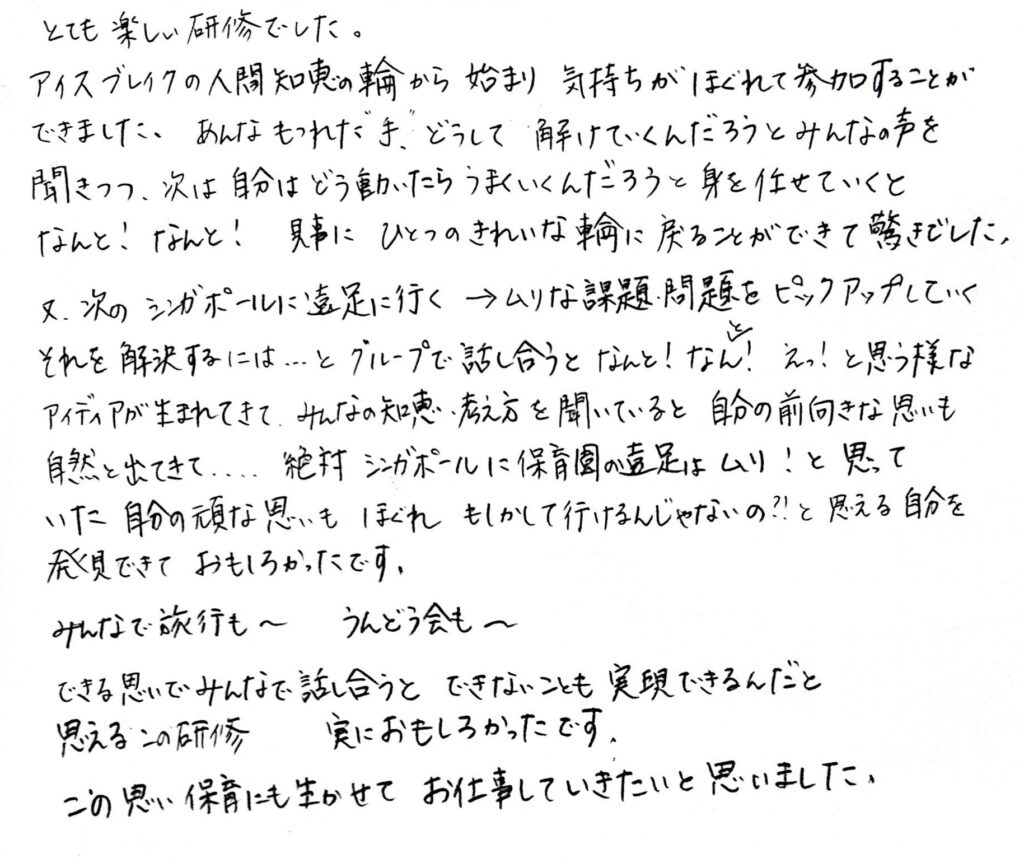 とても楽しい研修でした。
アイスブレイクの人間知恵の輪から始まり 気持ちがほぐれて参加することが
できました。 あんなもつれた"手"どうして 解けていくんだろうとみんなの声を
聞きつつ、次は自分はどう動いたらうまくいくんだろうと身を任せていくと
なんと！なんと！ 見事に ひとつのきれいな輪に戻ることができて驚きでした。
又、次の シンガポールに遠足に行く →ムリな課題・問題をピックアップしていく
それを解決するには…と グループで話し合うと なんと！なんと！ えっ！と思う様な
アイディアが生まれてきて、みんなの知恵、考え方を聞いていると 自分の前向きな思いも
自然と出てきて..... 絶対 シンガポールに保育園の遠足はムリ！と思って
いた 自分の頑な思いも ほぐれ もしかして行けるんじゃないの?!と思える自分を
発見できて おもしろかったです。
みんなで旅行も〜 うんどう会も〜
できる思いでみんなで話し合うと できないことも実現できるんだと
思えるこの研修 実におもしろかったです。
この思い保育にも生かせて お仕事していきたいと思いました。